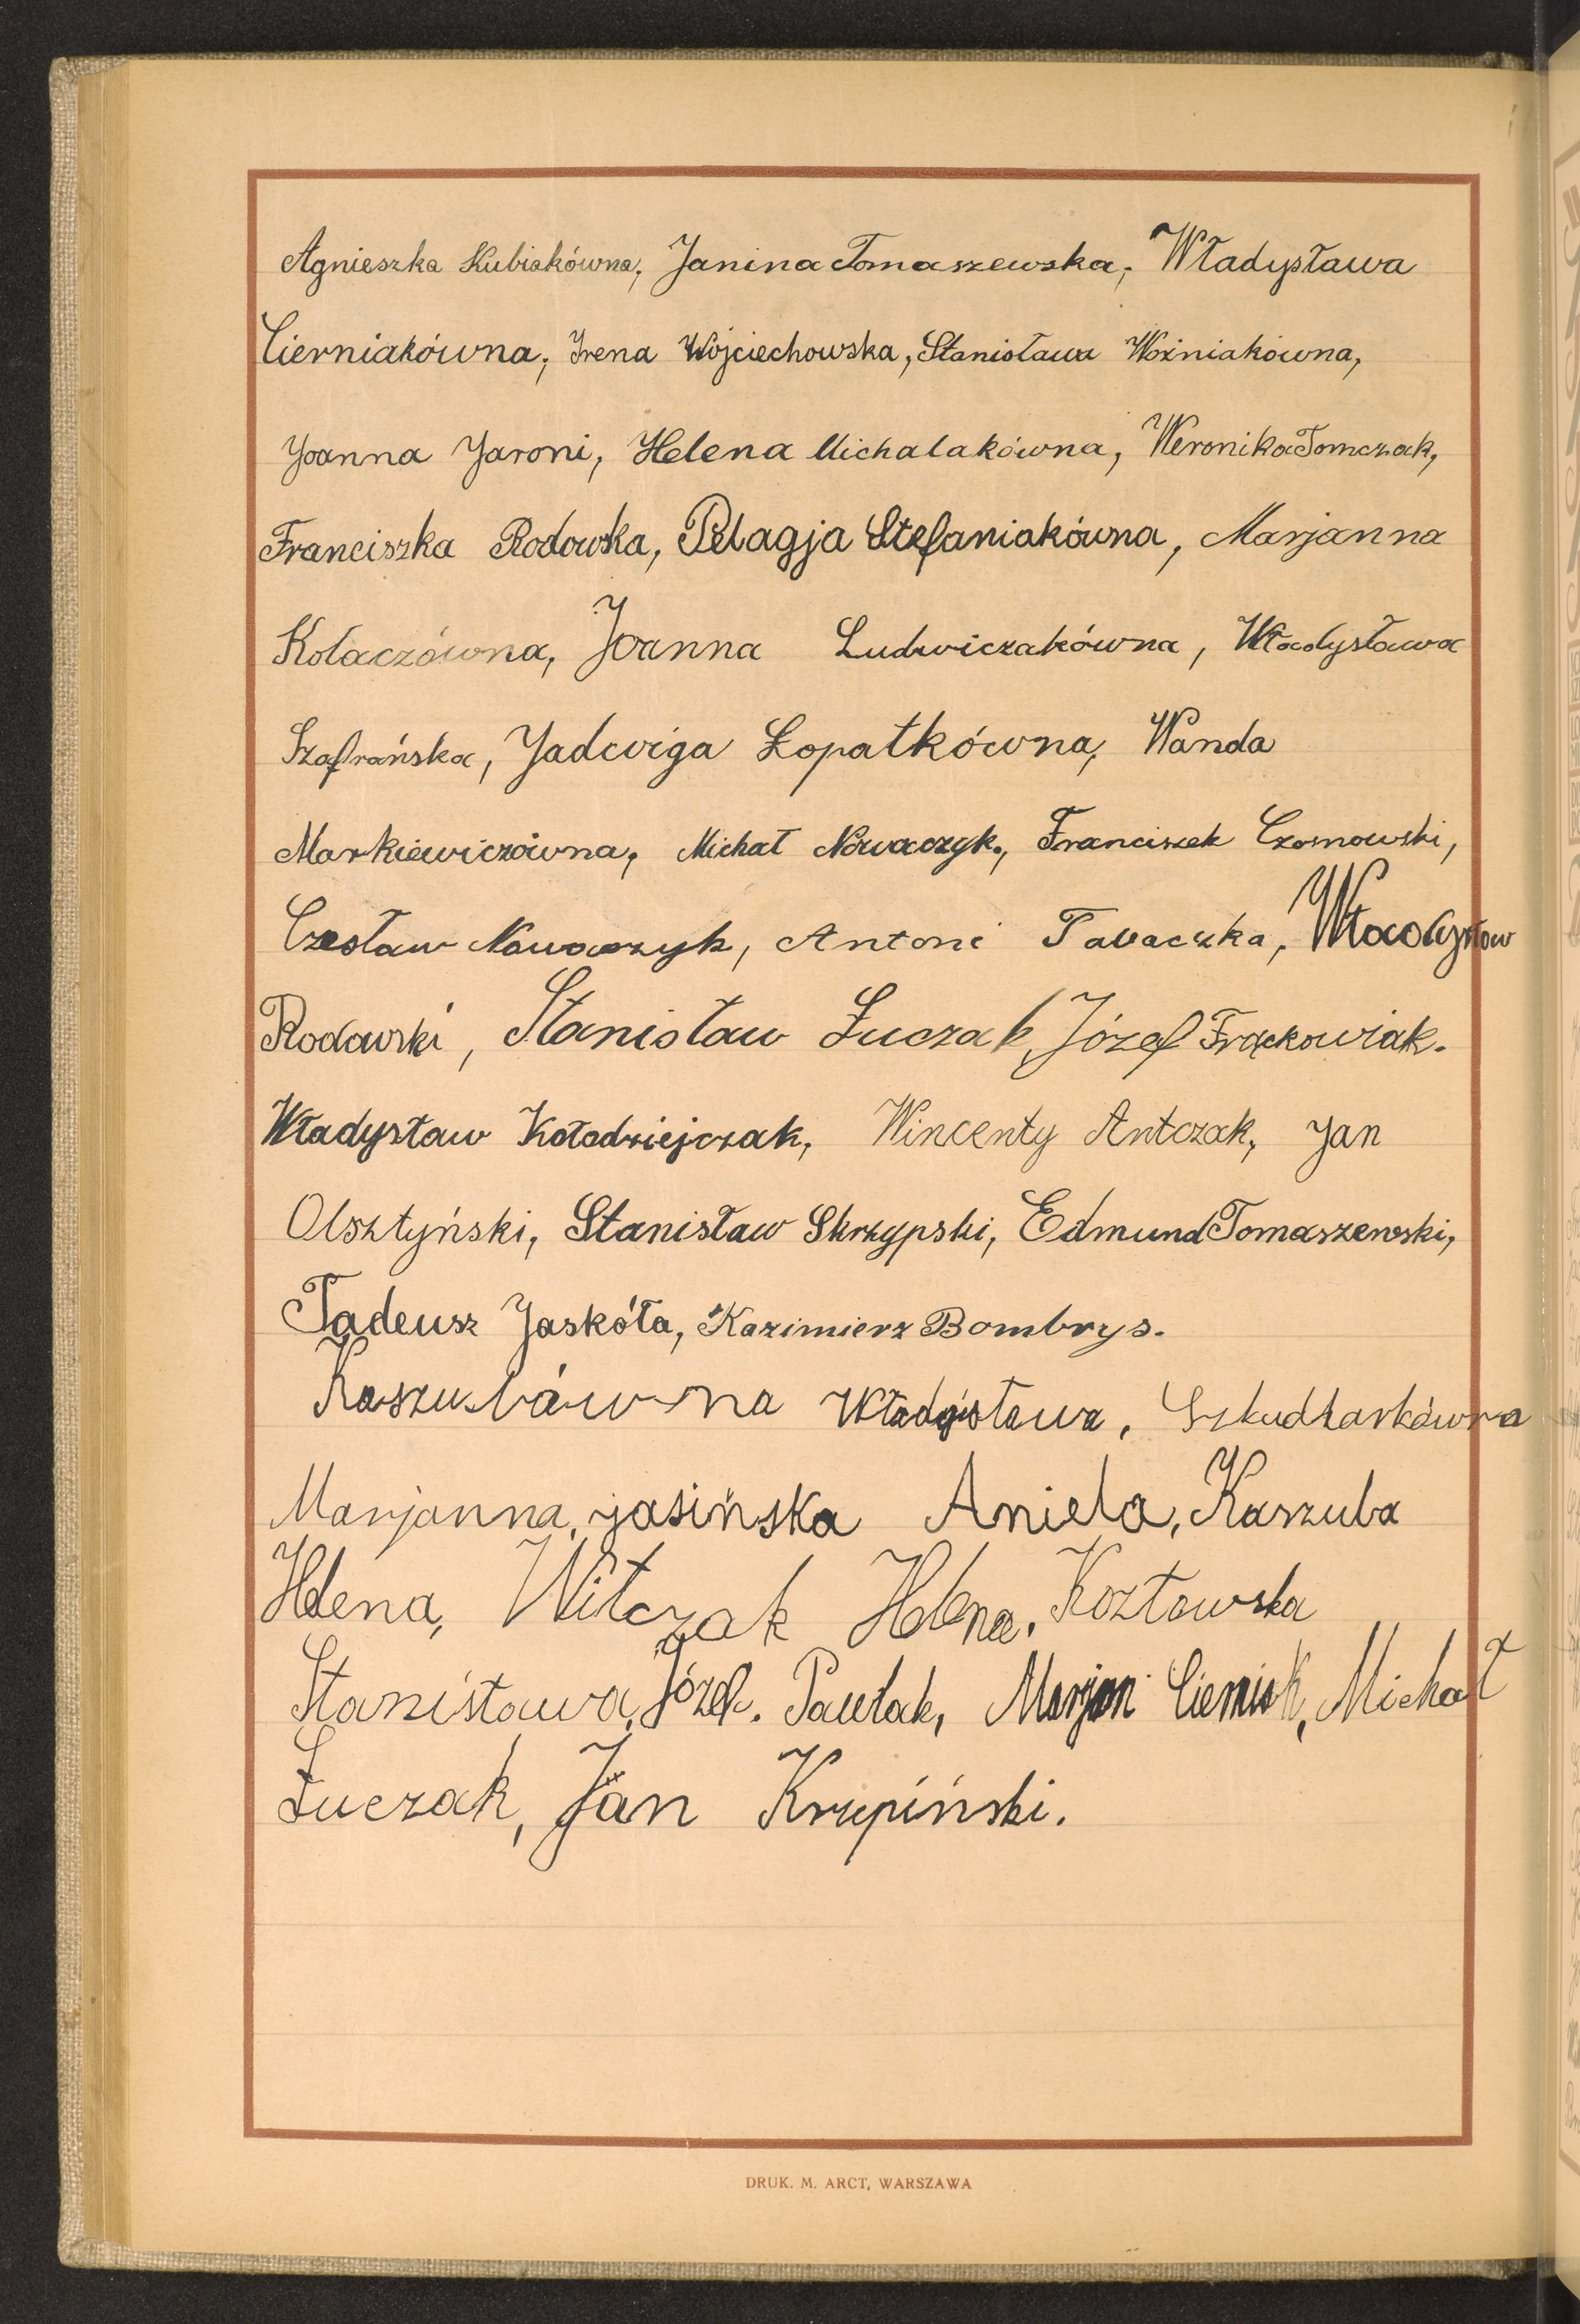 Agnieszka Kubiakówna, Janina Tomaszewska, Władysława
Cierniakówna, Irena Wojciechowska, Stanisława Woźniakówna,
Joanna Jaroni, Helena Michalakówna, Weronika Tomczak,
Franciszka Rodowska, Pelagja Stefaniakówna, Marjanna
Kołaczówna, Joanna Ludwiczakówna, Władysława
Szafrańska, Jadwiga Łopatkówna, Wanda
Markiewiczówna, Michał Nowaczyk, Franciszek Czosnowski,
Czesław Nowaczyk, Antoni Tabaczka, Władysław
Rodowski, Stanisław Łuczak, Józef Frąckowiak.
Władysław Kołodziejczak, Wincenty Antczak, Jan
Olsztyński, Stanisław Skrzypski, Edmund Tomaszewski,
Tadeusz Jaskóła, Kazimierz Bombrys.
Kaszubówna Władysława, Szkudlarkówna
Marjanna, jasińska Aniela, Kaszuba
Helena, Witczak Helena, Kozłowska
Stanisława, Józef. Pawlak, Marjan Cierniak, Michał
Łuczak, Jan Krzepiński.
DRUK. M. ARCT, WARSZAWA